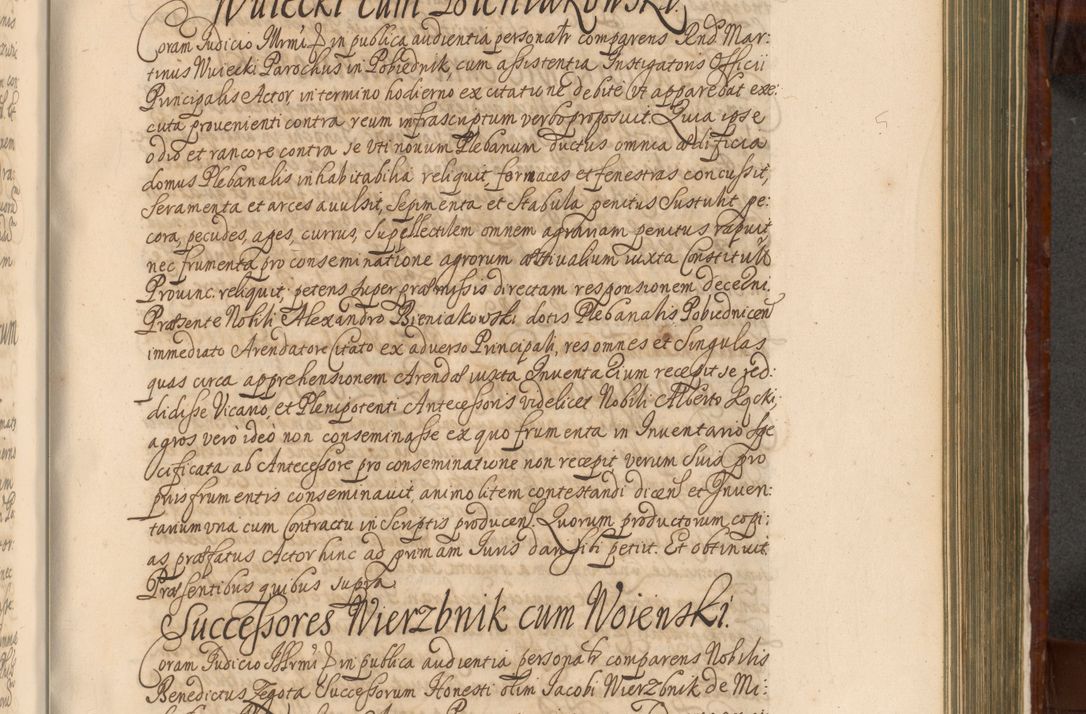 Wuiecki cum Bieniakowski.
Coram Iudicio Illrmi D in publica audientia personatr comparens Rnds Mar:
tinus Wuiecki Parochus in Pobiednik, cum assistentia Instigatoris Officii
Principalis Actor, in termino hodierno ex citatione debite ut apparebat exe:
cuta provenienti contra reum infrascriptum verbo proposuit. Quia ipse
odio et rancore contra se uti novum Plebanum ductus omnia ædificia
domus Plebanalis inhabitabilia reliquit, formaces et fenestras concussit,
seramenta et arces avulsit, sepimenta et stabula penitus sustulit pe:
cora, pecudes, apes, currus, supellectilem omnem agrariam penitus rapuit,
nec frumenta pro conseminatione agrorum æstivalium iuxta Constitut
Provinc. reliquit, petens super præmissis directam responsionem decerni.
Præsente Nobili Alexandro Bieniakowski dotis Plebanalis Pobiednicen
immediato Arendatore Citato ex adverso Principali, res omnes et singulas
quas circa apprehensionem Arendæ iuxta Inventarium recepit se red:
didisse Vicario, et Plenipotenti Antecessoris videlicet Nobili Alberto
agros vero ideo non conseminasse ex quo frumenta in Inventario spe
cificata ab Antecessore pro conseminatione non recepit verum suis pro
priis frumentis conseminavit, animo litem contestandi dicen et Inven:
tarium una cum Contractu in Scriptis producen. Quorum productorum copi:
as præfatus Actor hinc ad primam Iuris dari sibi petiit. Et obtinuit
Præsentibus quibus supra.
Successores Wierzbnik cum Woienski.
Coram Iudicio Illrmi D in publica audientia personatr comparens Nobilis
Benedictus Zegota Successorum Honesti olim Iacobi Wierzbnik de Mi: